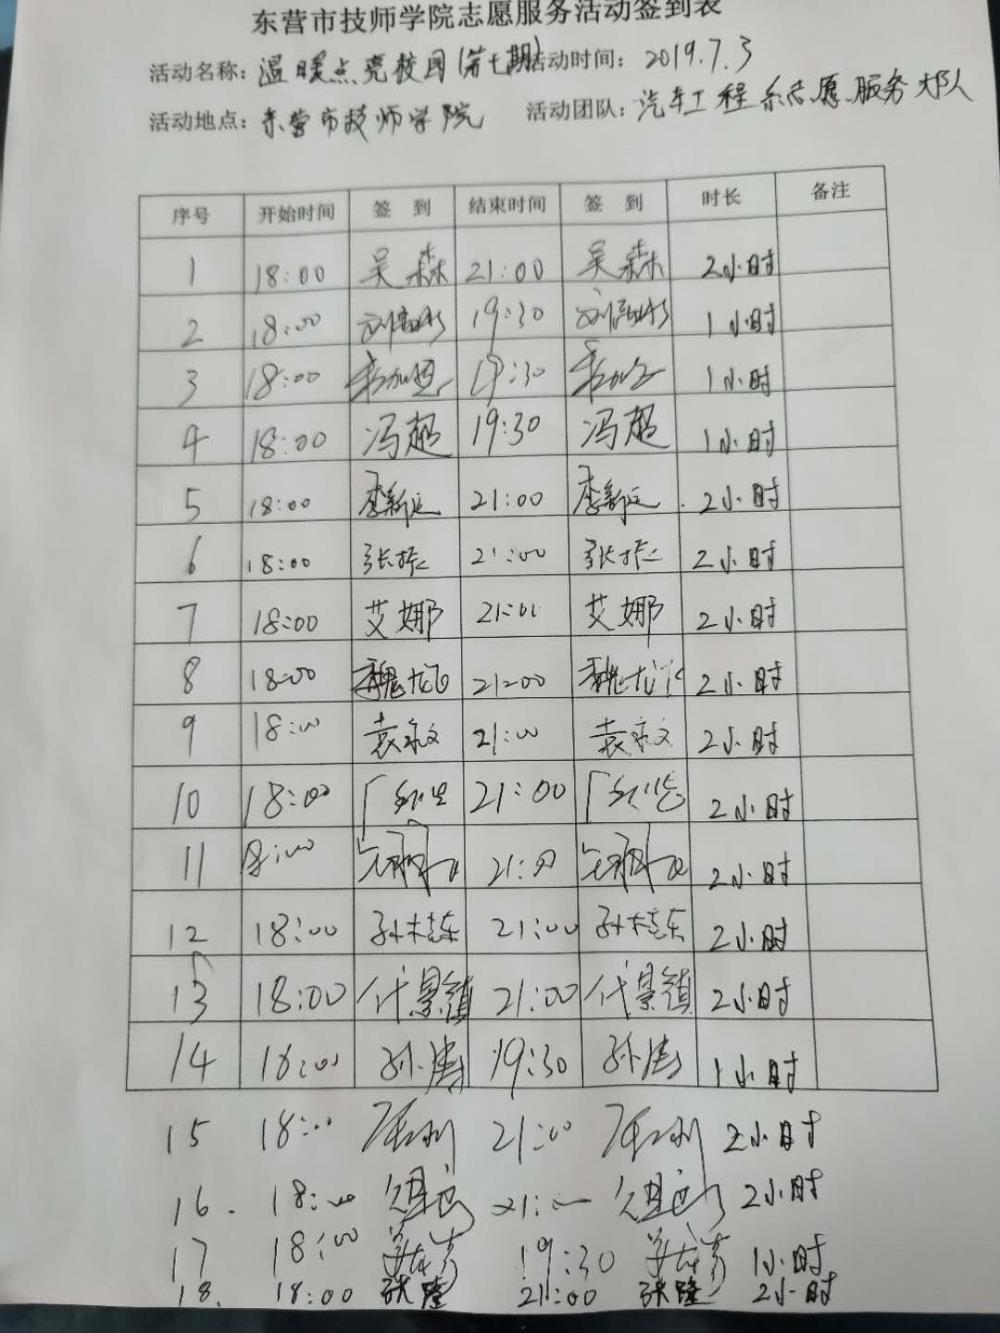 东营市技师学院志愿服务活动签到表
活动名称：温暖点亮校园(第七期) 活动时间：2019.7.3
活动地点：东营市技师学院 活动团队：汽车工程系志愿服务大队
序号 开始时间 签 到 结束时间 签 到 时长 备注
1 18:00 吴森 21:00 吴森 2小时
2 18:00 19:30 1小时
3 18:00 19:30 1小时
4 18:00 冯超 19:30 冯超 1小时
5 18:00 李新运 21:00 李新运 2小时
6 18:00 21:00 2小时
7 18:00 艾娜 21:00 艾娜 2小时
8 18:00 魏龙飞 21:00 魏龙飞 2小时
9 18:00 袁永文 21:00 袁永文 2小时
10 18:00 21:00 2小时
11 18:00 21:00 2小时
12 18:00 21:00 2小时
13 18:00 代景镇 21:00 代景镇 2小时
14 18:00 孙涛 19:30 孙涛 1小时
15 18:00 21:00 2小时
16. 18:00 21:00 2小时
17 18:00 19:30 1小时
18. 18:00 张隆 21:00 张隆 2小时